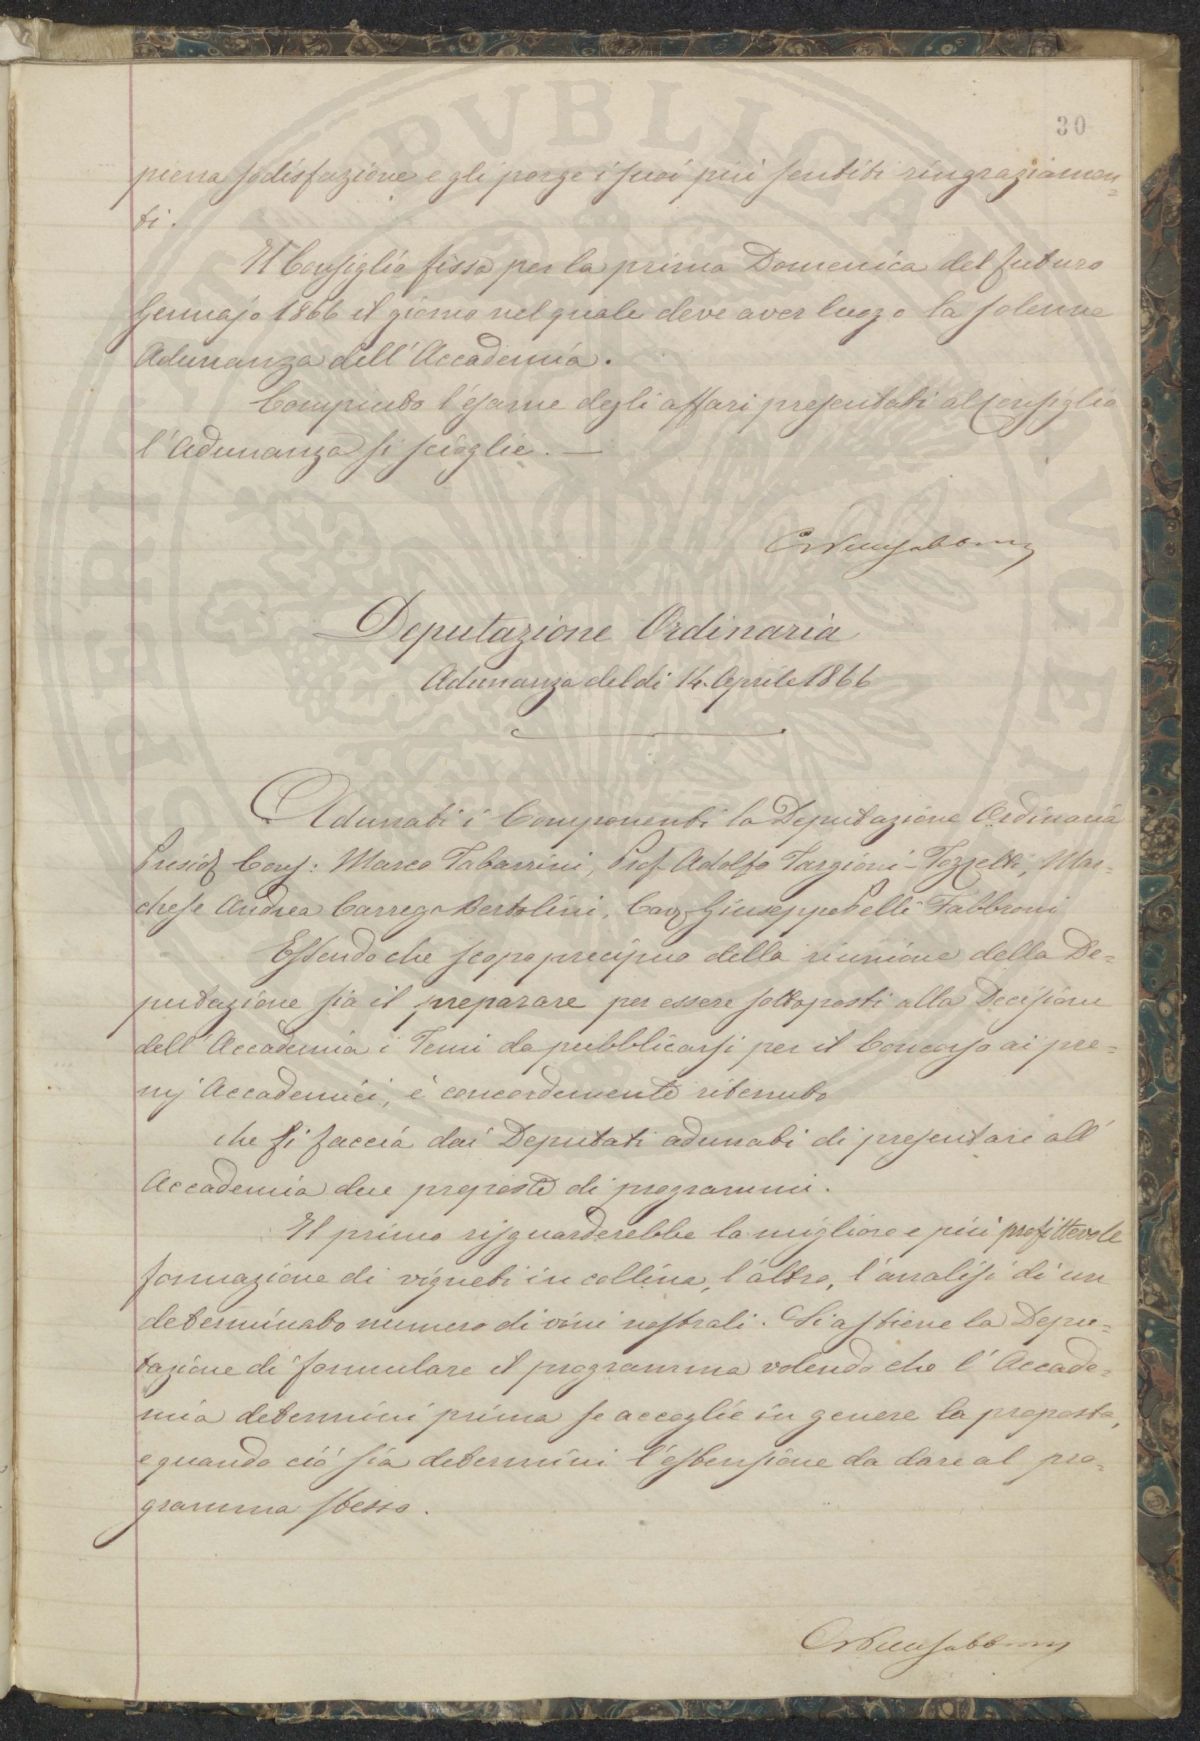 30
piena sodisfazione e gli porge i suoi più sentiti ringraziamen=
ti.
Il Consiglio fissa per la prima Domenica del futuro
Gennajo 1866 il giorno nel quale deve aver luogo la solenne
Adunanza dell'Accademia.
Compiuto l'esame degli affari presentati al Consiglio
l'Adunanza si scioglie. —
Deputazione Ordinaria
Adunanza del dì 14. Aprile 1866
Adunati i Componenti la Deputazione Ordinaria
Presid. Cons: Marco Tabarrini, Prof. Adolfo Targioni-Tozzetti, Mar=
chese Andrea Carrega Bertolini, Cav. Giuseppe Pelli Fabbroni
Essendo che scopo precipuo della riunione della De=
putazione sia il preparare per essere sottoposti alla Decisione
dell'Accademia i Temi da pubblicarsi per il Concorso ai pre=
mj Accademici, è concordemente ritenuto
che si faccia dai Deputati adunati di presentare all'
Accademia due proposte di programmi.
Il primo risguarderebbe la migliore e più profittevole
formazione di vigneti in collina, l'altro, l'analisi di un
determinato numero di vini nostrali. Si astiene la Depu=
tazione di formulare il programma volendo che l'Accade=
mia determini prima se accoglie in genere la proposta,
e quando ciò sia determini l'estensione da dare al pro=
gramma stesso.